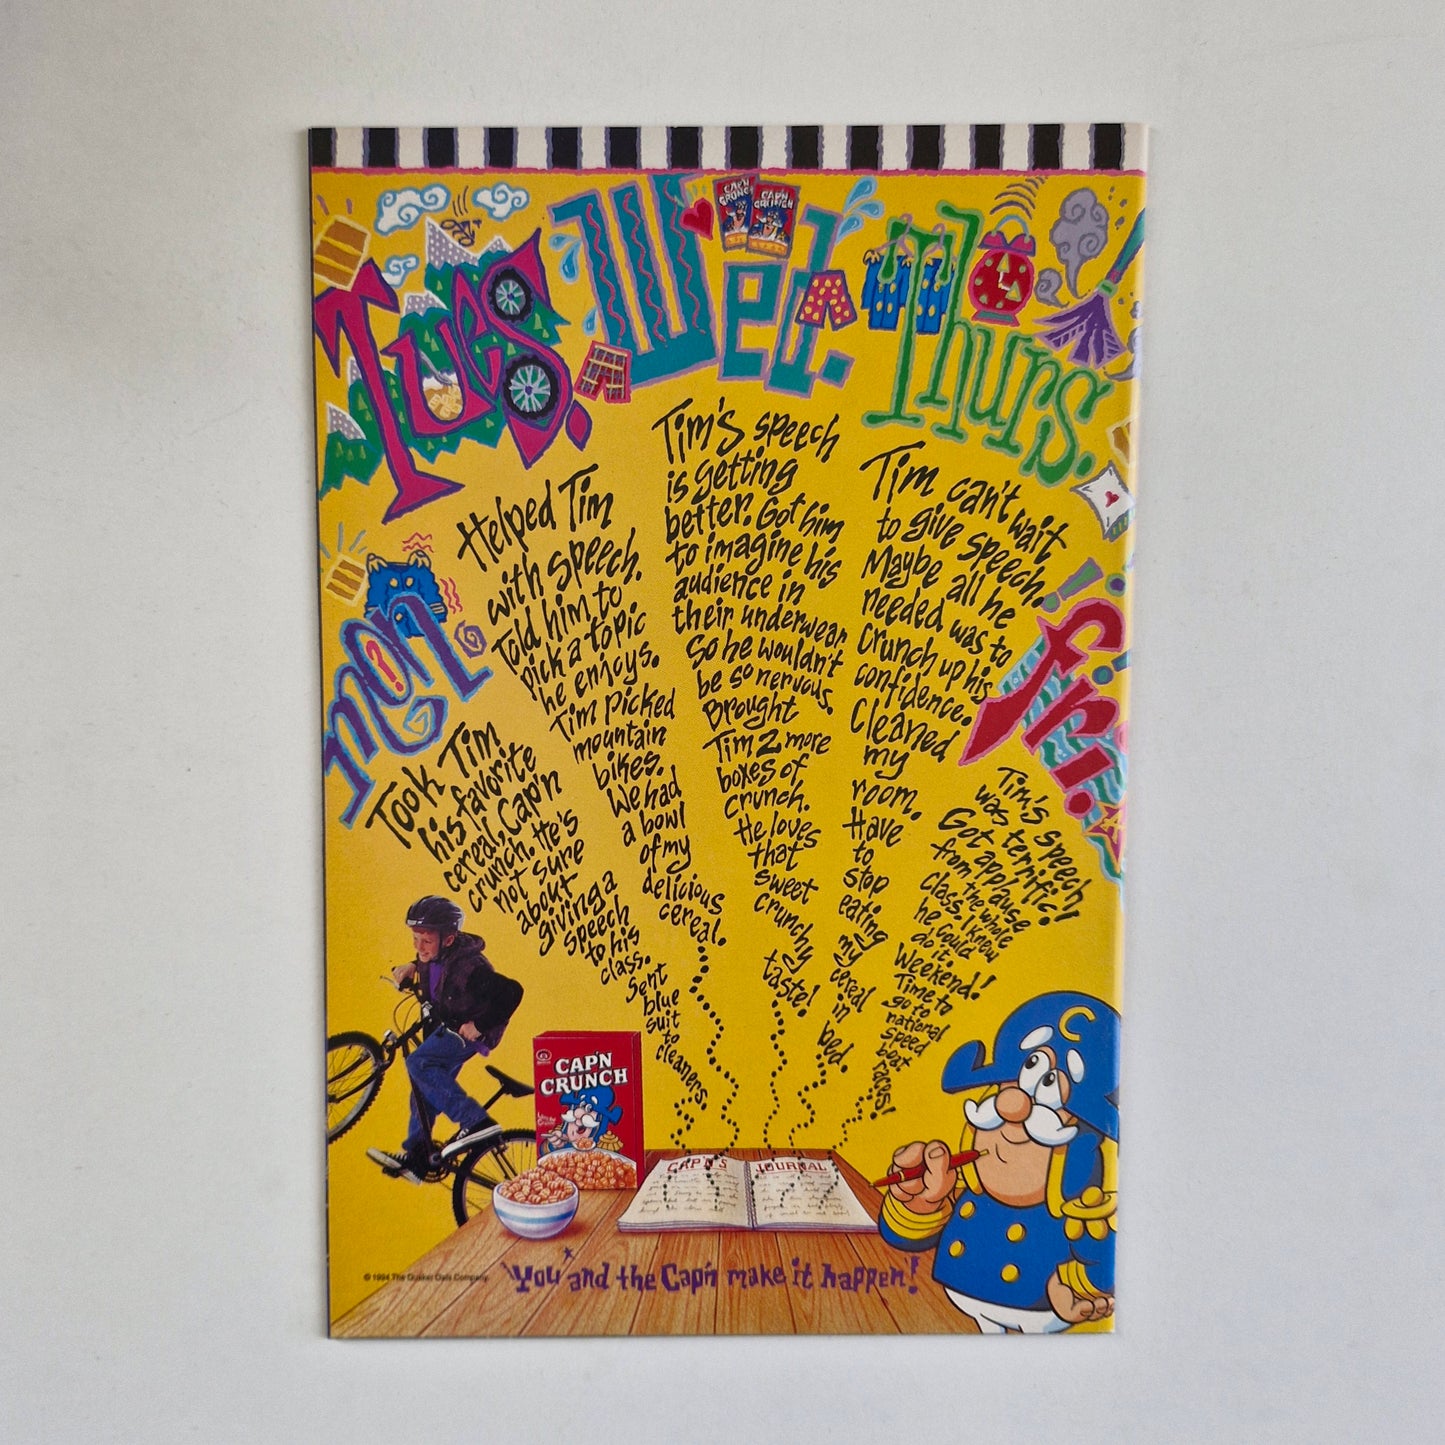 Mon.
Took Tim
his favorite
cereal, Cap'n
crunch. He's
not sure
about
giving a
speech
to his
class.
Sent
blue
suit
to
cleaners.
Tues.
Helped Tim
with speech.
Told him to
pick a topic
he enjoys.
Tim picked
mountain
bikes.
We had
a bowl
of my
delicious
cereal.
Wed.
CAP'N CRUNCH
CAP'N CRUNCH
Tim's speech
is getting
better. Got him
to imagine his
audience in
their underwear
So he wouldn't
be so nervous.
Brought
Tim 2 more
boxes of
crunch.
He loves
that
sweet
crunchy
taste!
Thurs.
Tim can't wait
to give speech.
Maybe all he
needed was to
crunch up his
confidence.
Cleaned
my
room.
Have
to
stop
eating
my
cereal
in
bed.
Fri.
Tim's speech
was terrific!
Got applause
from the whole
class. I knew
he could
do it.
Weekend!
Time to
go to
national
speed
boat
races!
CAP'N
CRUNCH
CAP'N'S JOURNAL
C
© 1994 The Quaker Oats Company.
You and the Cap'n make it happen!